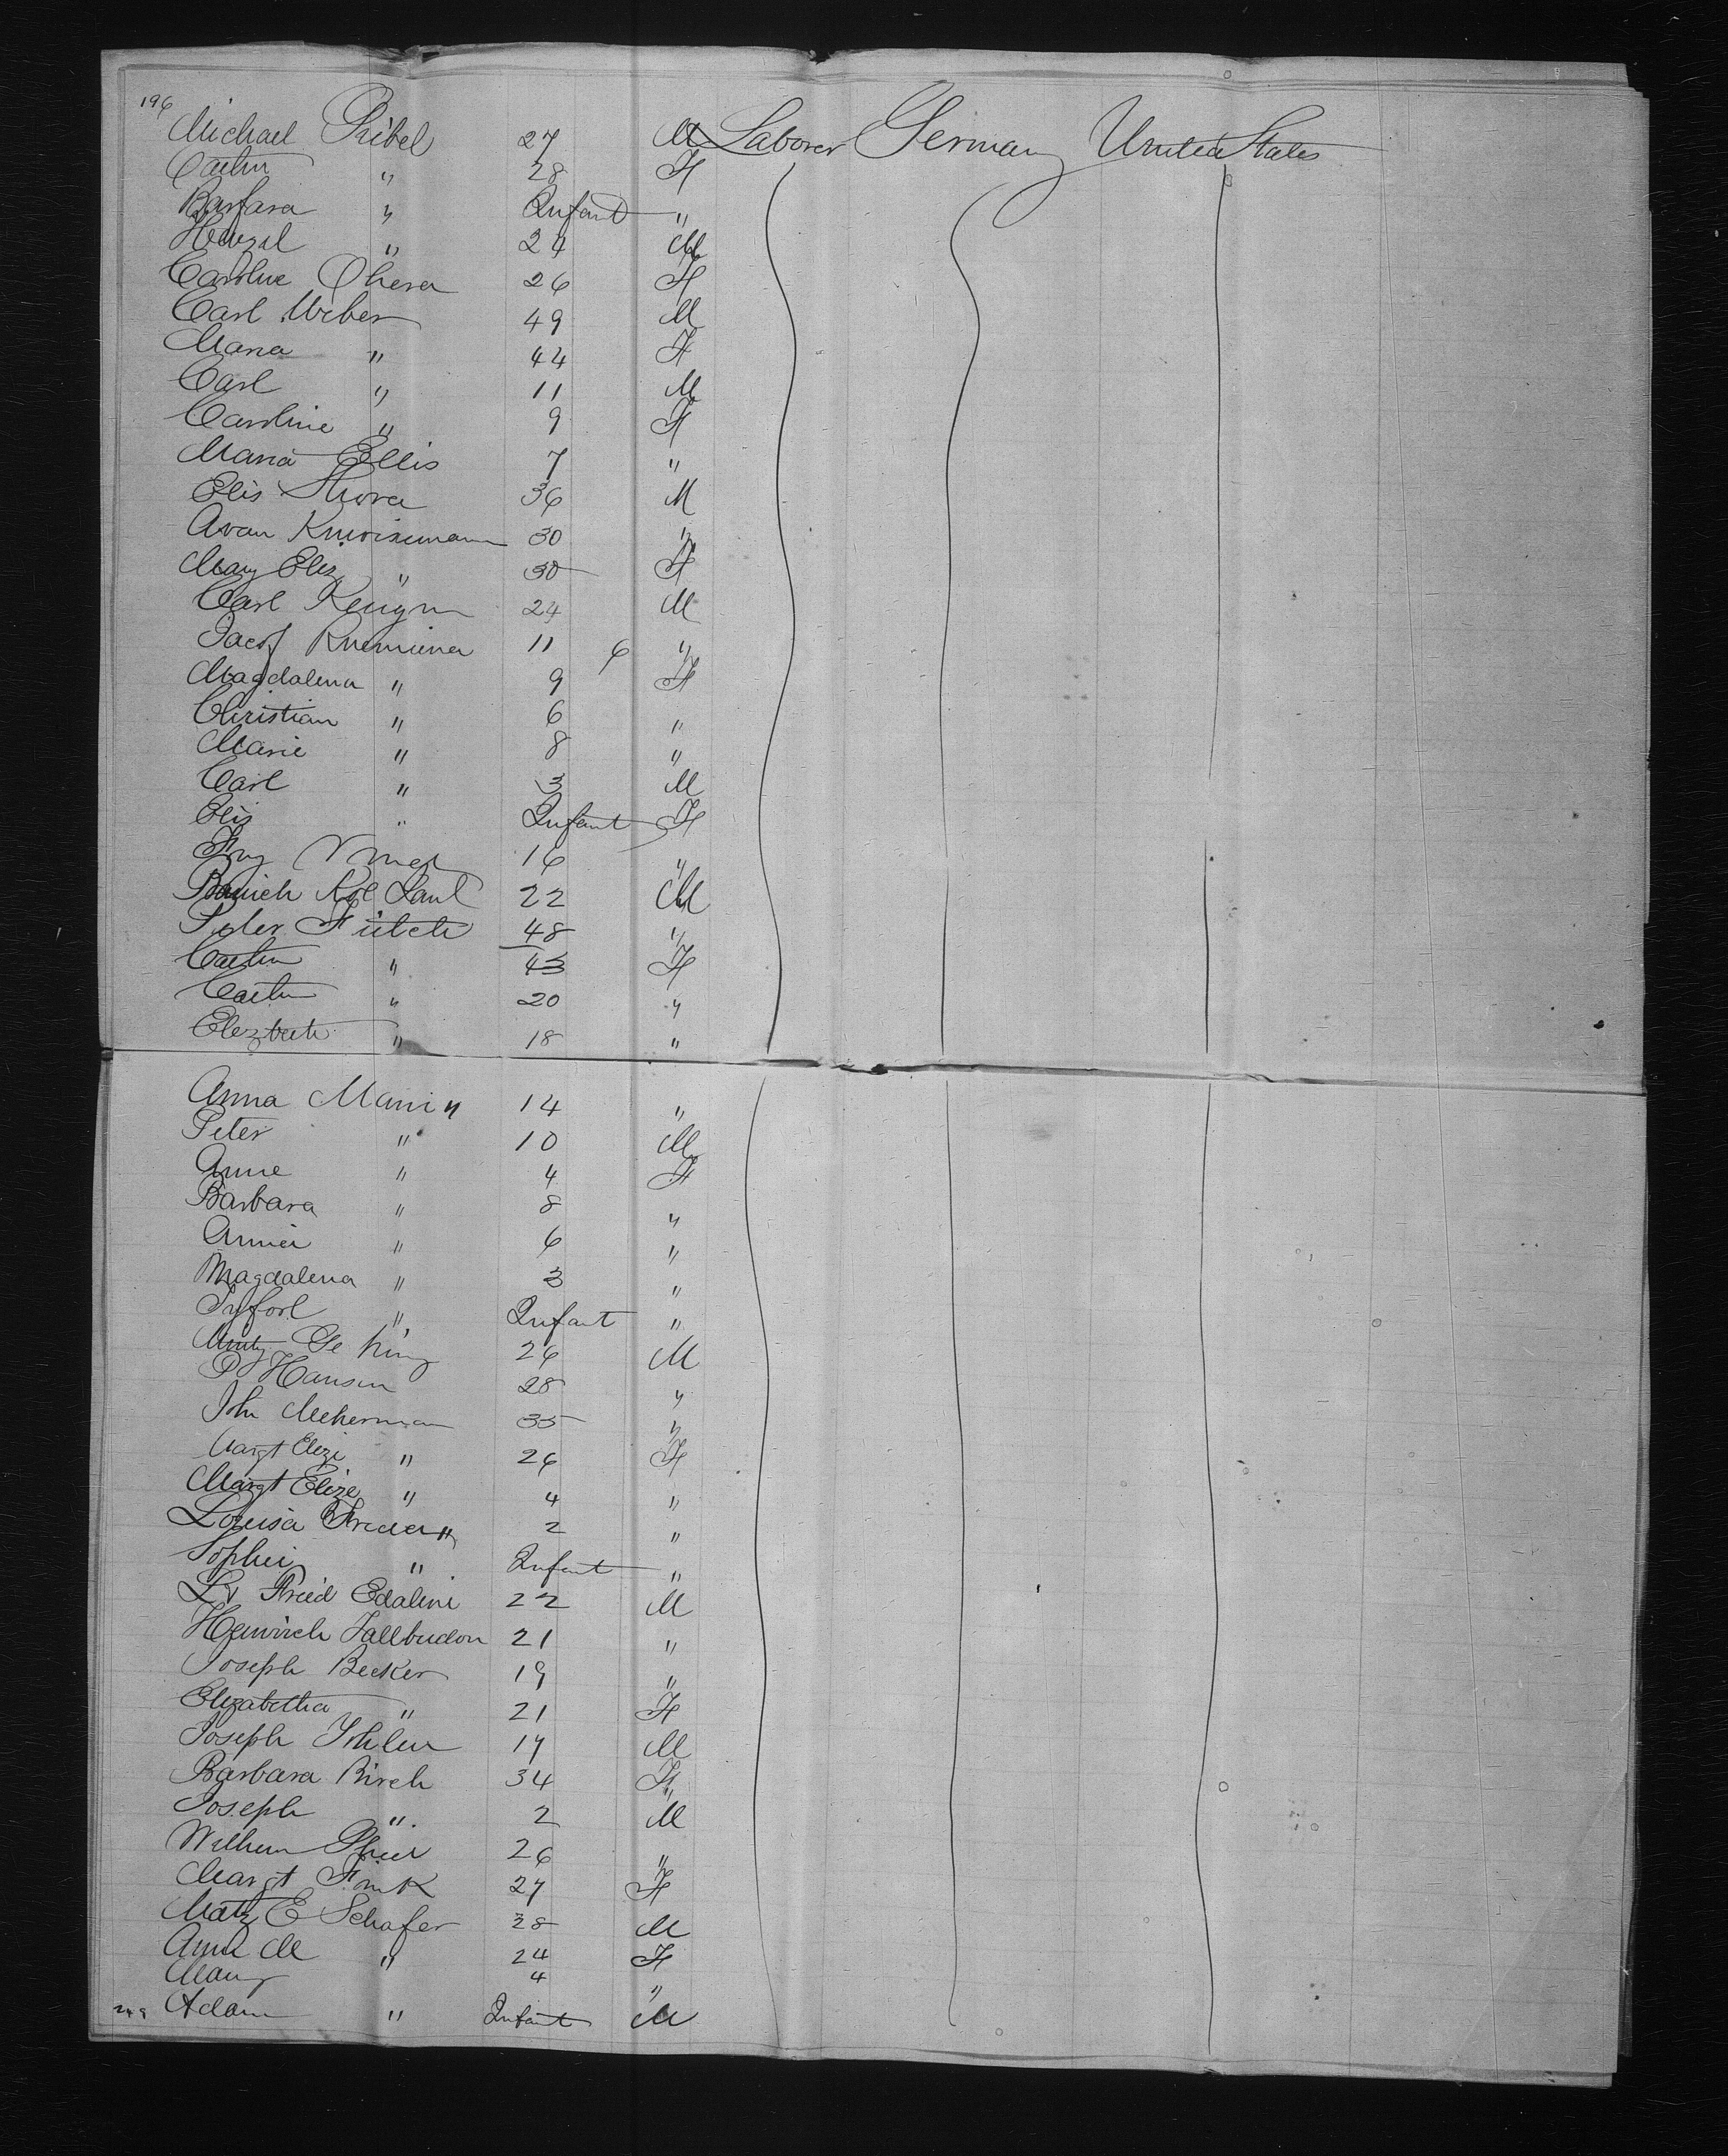 196
Michael Pribel 27 M Laborer Germany United States
Catin " 28 F
Barbara " Infant "
Henzal " 24 M
Caroline Ohera 26 F
Carl Weber 49 M
Maria " 44 F
Carl " 11 M
Caroline " 9 F
Maria Ellis 7 "
Elis Thora 36 M
30 "
Mary Elis " 30 F
Carl 24 M
Jacob 11 6 "
Magdalena " 9 F
Christian " 6 "
Marie " 8 "
Carl " 3 M
Elis " Infant F
16 "
22 M
Peter 48 "
Catin " 43 F
Catin " 20 "
Elezbeth " 18 "
Anna Marii " 14 "
Peter " 10 M
Anne " 4 F
Barbara " 8 "
Annie " 6 "
Magdalena " 3 "
" Infant "
26 M
P Hansen 28 "
Joh 35 "
Margt Elize " 26 F
Margt Elize " 4 "
Louisa " 2 "
Sophie " Infant "
Fried Edaline 22 M
Heinrich Fallbudon 21 "
Joseph Becker 19 "
Elizabetha " 21 F
Joseph Ihlen 17 M
Barbara Birch 34 F
Joseph " 2 M
Wilhem 26 "
Margt Fink 27 F
Matz E Schafer 28 M
Anna M " 24 F
Mary 4 "
249 Adam " Infant M